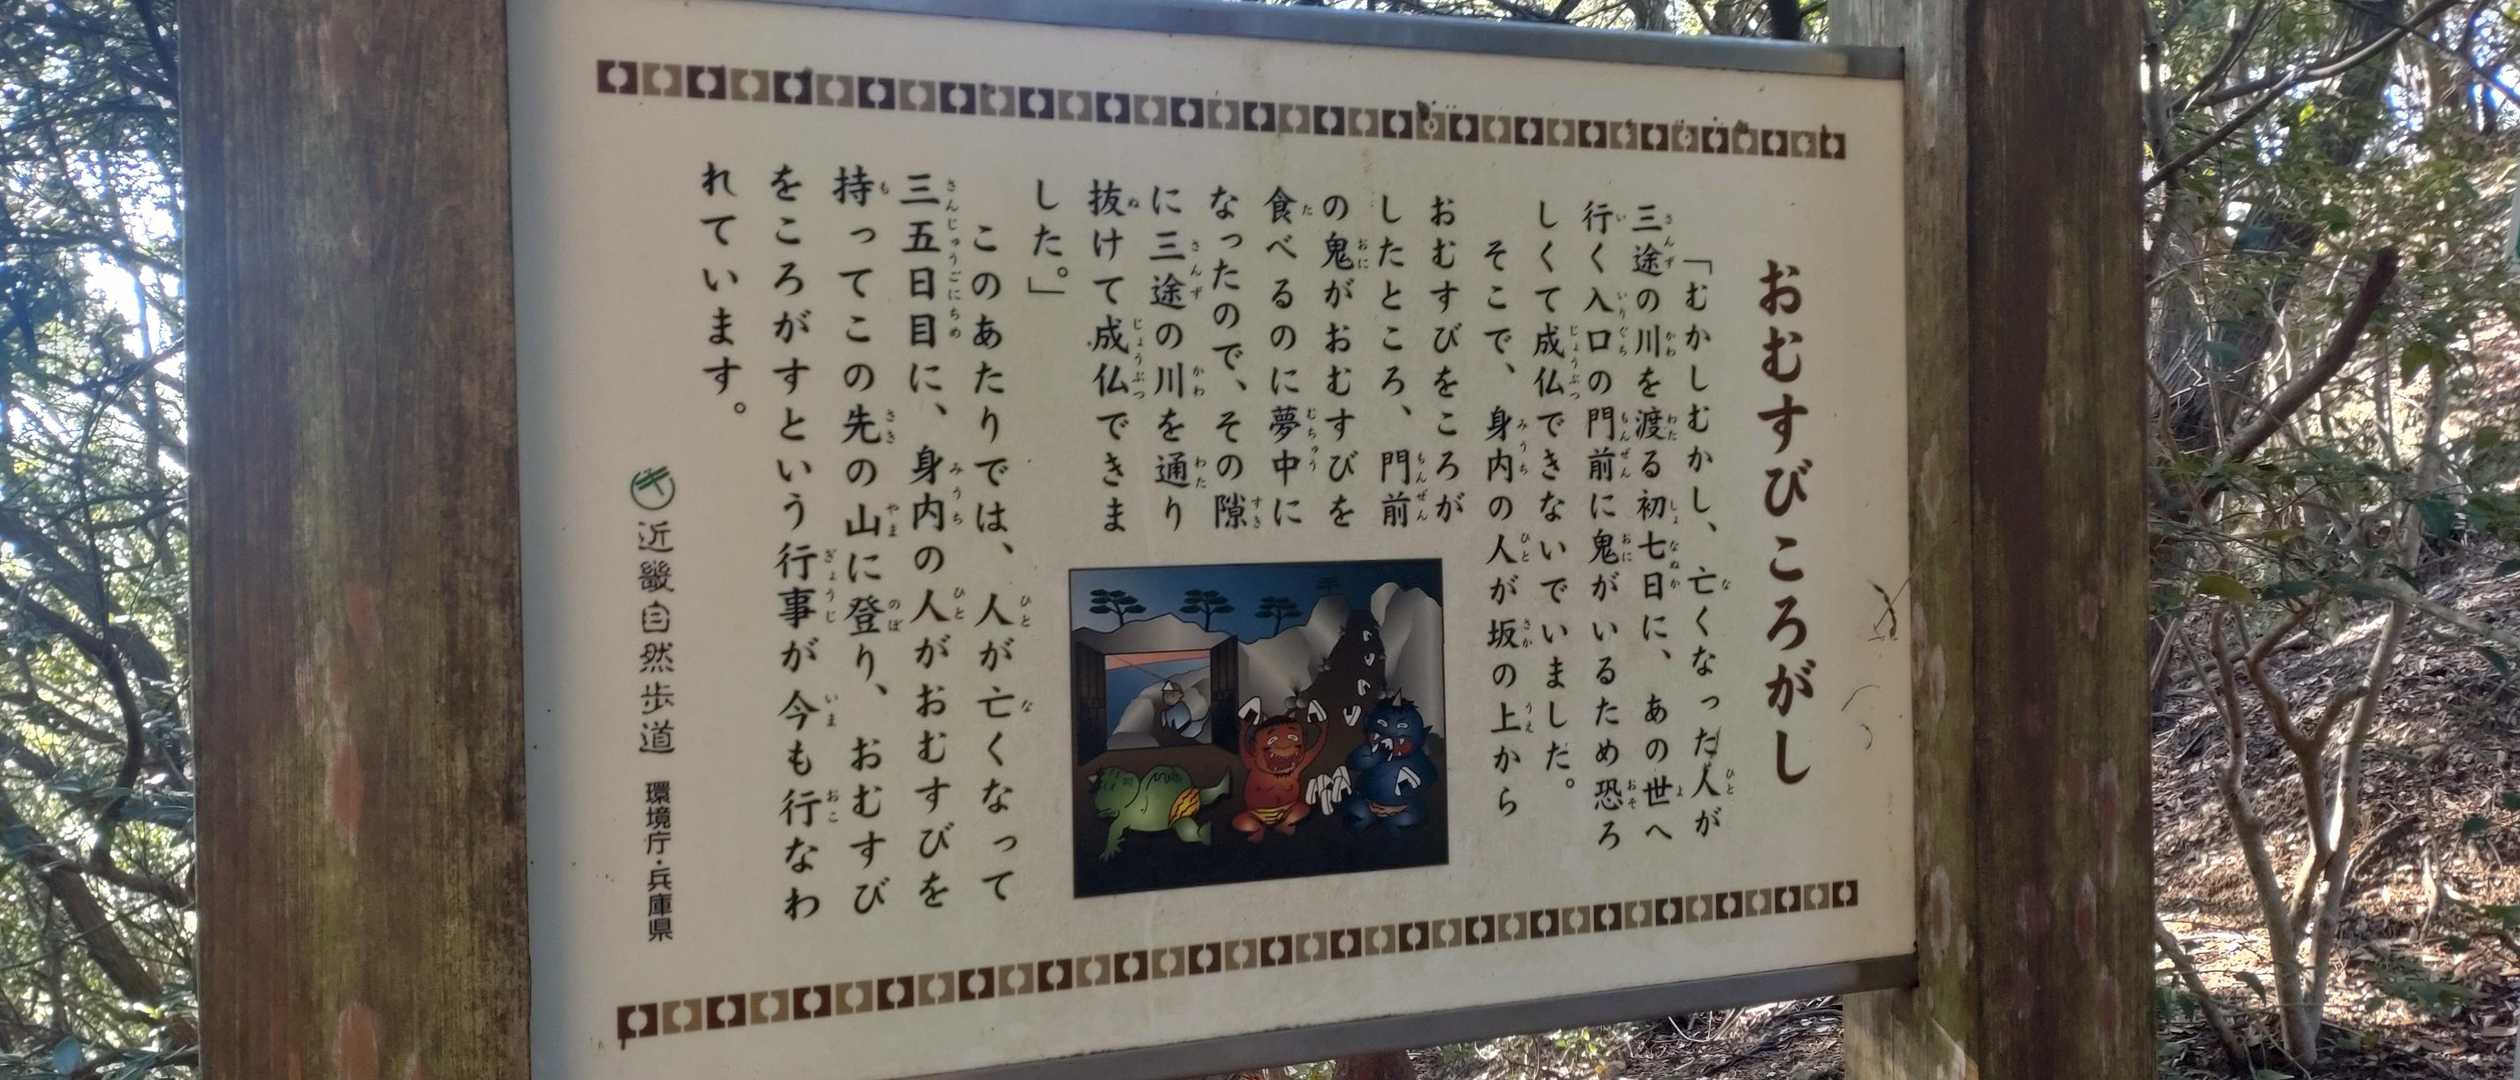 おむすびころがし
「むかしむかし、亡くなった人が
三途の川を渡る初七日に、あの世へ
行く入口の門前に鬼がいるため恐ろ
しくて成仏できないでいました。
そこで、身内の人が坂の上から
おむすびをころが
したところ、門前
の鬼がおむすびを
食べるのに夢中に
なったので、その隙
に三途の川を通り
抜けて成仏できま
した。」
このあたりでは、人が亡くなって
三五日目に、身内の人がおむすびを
持ってこの先の山に登り、おむすび
をころがすという行事が今も行なわ
れています。
近畿自然歩道 環境庁・兵庫県